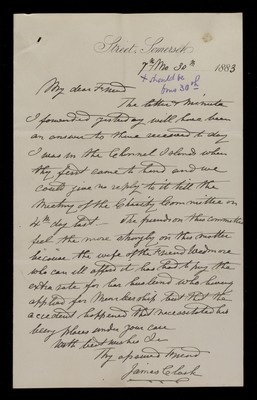 Street, Somerset
7th/Mo. 30th 1883
+ should be
from 30th
My dear Friend
The letter & Minute
I forwarded yesterday will have been
an answer to thine received to day
I was in the Channel Island when
thy first came to hand and we
could give no reply to it till the
Meeting of the Charity Committee on
4th day last. The friends on this committee
feel the more strongly on this matter
because the wife of the Friend Wedmore
who can ill afford it has had to pay the
extra rate for her husband who having
applied for Membership but that the
accident happened that necessitated his
being placed under your care
With best wishes I am
Thy assured Friend
James Clark